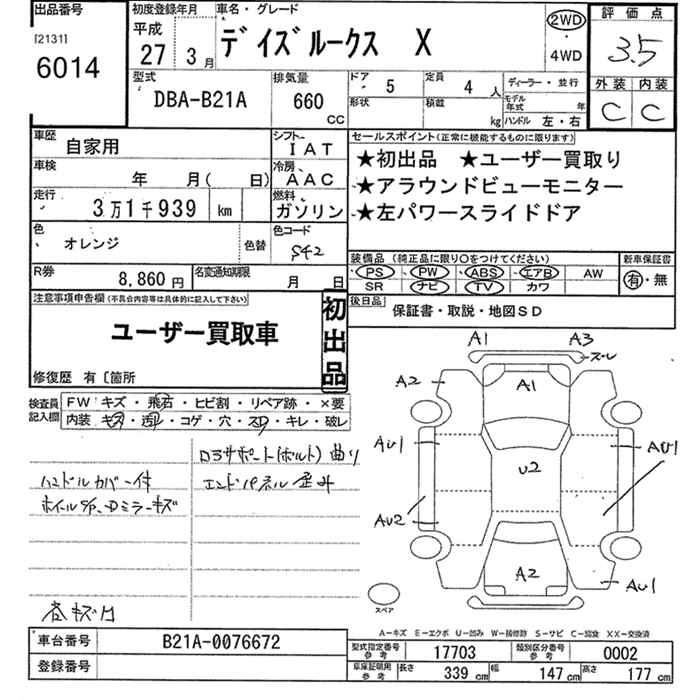 出品番号
[2131]
6014
初度登録年月
平成
27年 3月
車名・グレード
デイズルークス X
2WD
・
4WD
評価点
3.5
外装 内装
C C
型式
DBA-B21A
排気量
660
CC
ドア 5
形状
定員 4人
積載 kg
ディーラー・並行
モデル年式 年
ハンドル 左・右
車歴 自家用
シフト IAT
車検 年 月( 日)
冷房 AAC
走行 3万1千939 km
燃料 ガソリン
色 オレンジ 色替
色コード S42
R券 8,860円
名変通知期限 月 日
セールスポイント(正常に機能するものに限ります)
★初出品 ★ユーザー買取り
★アラウンドビューモニター
★左パワースライドドア
装備品(純正品に限り○をつけてください)
PS PW ABS エアB AW
SR ナビ TV カワ
新車保証書
有・無
後日品
保証書・取説・地図SD
注意事項申告欄(不具合内容等は具体的に記入して下さい)
ユーザー買取車
初出品
修復歴 有〔箇所
検査員記入欄
FW キズ・飛石・ヒビ割・リペア跡・×要
内装 キズ・・コゲ・穴・スレ・キレ・破レ
サポート(ボルト)曲り
ハンドルカバー付
エンドパネル歪み
ミラーキズ
キズ凹
A1 A3
スレ
A2 A1
AU1 U2 AU1
AU2
A2 AU1
スペア
A-キズ E-エクボ U-凹み W-補修跡 S-サビ C-腐食 XX-交換済
車台番号 B21A-0076672
登録番号
型式指定番号 参考 17703
類別区分番号 参考 0002
車庫証明用 参考 長さ 339cm 幅 147cm 高さ 177cm